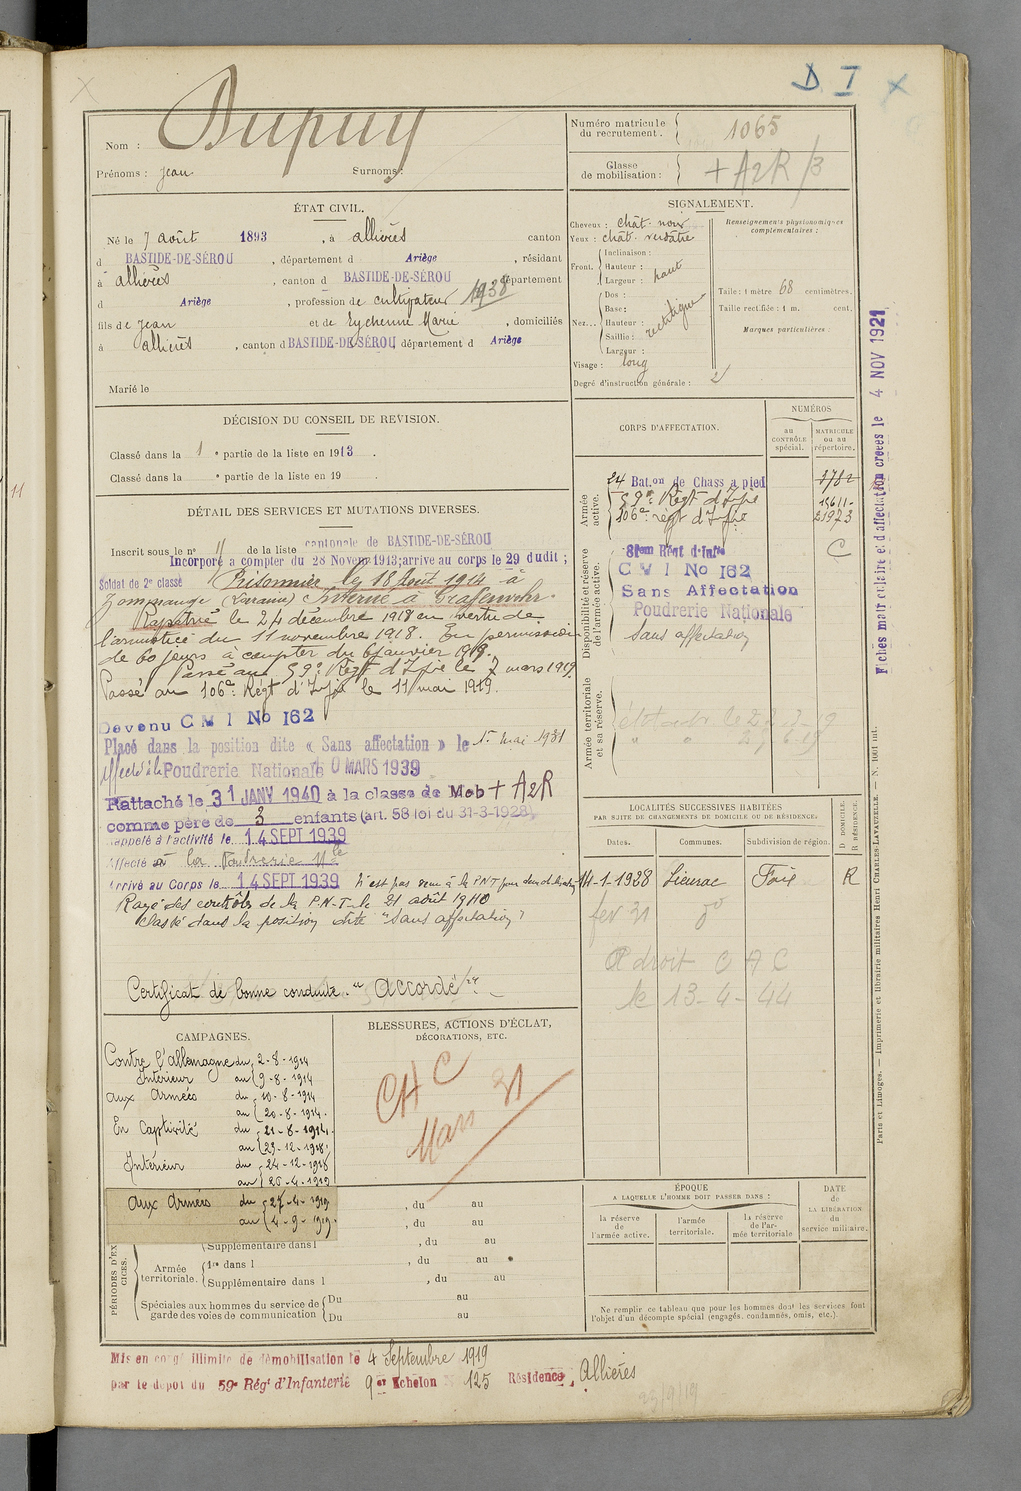 D I
Nom : Dupuy
Prénoms : Jean Surnoms :
Numéro matricule du recrutement. 1065
Classe de mobilisation : + A2R /3
ÉTAT CIVIL.
Né le 7 août 1893, à Allières canton
d BASTIDE-DE-SÉROU, département d Ariège, résidant
à Allières, canton d BASTIDE-DE-SÉROU département
d Ariège, profession de cultivateur 1938
fils de Jean et de Eychenne Marie, domiciliés
à Allières, canton d BASTIDE-DE-SÉROU département d Ariège
Marié le
SIGNALEMENT.
Cheveux : chât. noir
Yeux : chât. verdâtre
Front. Inclinaison :
Hauteur : haut
Largeur :
Nez... Dos :
Base : rectiligne
Hauteur :
Saillie :
Largeur :
Visage : long
Degré d'instruction générale : 2
Renseignements physionomiques complémentaires :
Taille : 1 mètre 68 centimètres.
Taille rectifiée : 1 m. cent.
Marques particulières :
DÉCISION DU CONSEIL DE REVISION.
Classé dans la 1 e partie de la liste en 1913.
Classé dans la e partie de la liste en 19 .
DÉTAIL DES SERVICES ET MUTATIONS DIVERSES.
Inscrit sous le n° 11 de la liste cantonale de BASTIDE-DE-SÉROU
Incorporé a compter du 28 Novem 1913; arrive au corps le 29 dudit ;
Soldat de 2e classe Prisonnier le 18 Août 1914 à
(Lorraine) Interné à Grafenwohr.
Rapatrié le 24 décembre 1918 en vertu de
l'armistice du 11 novembre 1918. En permission
de 60 jours à compter du 6 janvier 1919.
Passé au 59e Régt d'Infie le 7 mars 1919.
Passé au 106e Régt d'Infie le 11 mai 1919.
Devenu C M I No 162
Placé dans la position dite « Sans affectation » le 1er mai 1931
Affecté à la Poudrerie Nationale 10 MARS 1939
Rattaché le 31 JANV 1940 à la classe de Mob + A2R
comme père de 3 enfants (art. 58 loi du 31-3-1928)
rappelé à l'activité le 14 SEPT 1939
Affecté à la Poudrerie Nle
Arrivé au Corps le 14 SEPT 1939 N'est pas venu à la PNT
Rayé des contrôles de la P.N.T. le 21 août 1940
Classé dans la position dite "Sans affectation"
Certificat de bonne conduite "Accordé"
CORPS D'AFFECTATION.
NUMÉROS
au CONTRÔLE spécial.
MATRICULE ou au répertoire.
Armée active.
24 Bat.on de Chass a pied
59e Régt d'Infie
106e régt d'Infie 21973
Disponibilité et réserve de l'armée active.
81em Régt d'Infie C
C M I No 162
Sans Affectation
Poudrerie Nationale
Sans affectation
Armée territoriale et sa réserve.
Fiches matriculaire et d'affectation créées le 4 NOV 1921
LOCALITÉS SUCCESSIVES HABITÉES
PAR SUITE DE CHANGEMENTS DE DOMICILE OU DE RÉSIDENCE.
Dates. Communes. Subdivision de région. D DOMICILE. R RÉSIDENCE.
14-1-1928 Lieurac Foix R
fev 31 do
droit C A C
le 13-4-44
CAMPAGNES.
Contre l'Allemagne du 2-8-1914
Intérieur au 9-8-1914
aux Armées du 10-8-1914
au 20-8-1914.
En Captivité du 21-8-1914.
au 23-12-1918;
Intérieur du 24-12-1918
au 26-4-1919
aux Armées du 27-4-1919
au 4-9-1919.
BLESSURES, ACTIONS D'ÉCLAT,
DÉCORATIONS, ETC.
CHC
Mars 31
, du au
, du au
PÉRIODES D'EX CICES.
Supplémentaire dans l , du au
Armée territoriale. 1re dans l , du au
Supplémentaire dans l , du au
Spéciales aux hommes du service de garde des voies de communication Du au
Du au
ÉPOQUE
A LAQUELLE L'HOMME DOIT PASSER DANS :
la réserve de l'armée active.
l'armée territoriale.
la réserve de l'armée territoriale
DATE de LA LIBÉRATION du service militaire.
Ne remplir ce tableau que pour les hommes dont les services font
l'objet d'un décompte spécial (engagés, condamnés, omis, etc.).
Paris et Limoges. — Imprimerie et librairie militaires Henri CHARLES-LAVAUZELLE. — N. 1601 int.
Mis en congé illimité de démobilisation le 4 Septembre 1919
par le dépôt du 59e Régt d'Infanterie 9e Echelon N 125 Résidence, Allières